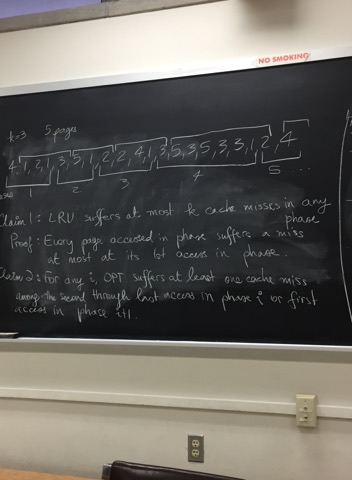 NO SMOKING
k=3 5 pages
4, 1, 2, 1, 3, 5, 1, 2, 2, 4, 1, 3, 5, 3, 5, 3, 3, 1, 2, 4
1 2 3 4 5 ...
Claim 1: LRU suffers at most k cache misses in any
phase
Proof: Every page accessed in phase suffers a miss
at most at its 1st access in phase.
Claim 2: For any i, OPT suffers at least one cache miss
among the second through last access in phase i or first
access in phase i+1.